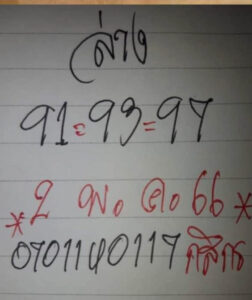 ล่าง
91=93=97
*2 พ.ค.66*
0701140117 กสิกร